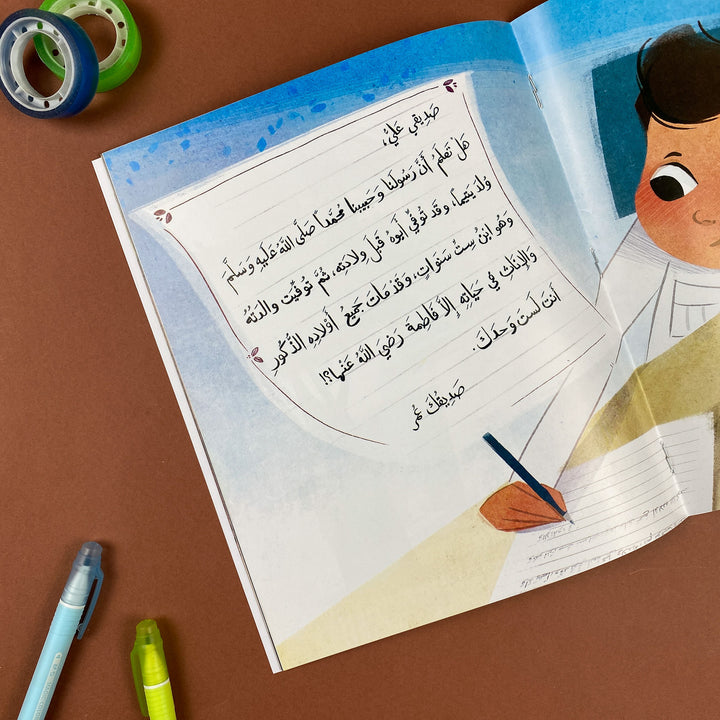 صَدِيقِي عَلِيٌّ،
هَلْ تَعْلَمُ أَنَّ رَسُولَنَا وَحَبِيبَنَا مُحَمَّدًا صَلَّى اللَّهُ عَلَيْهِ وَسَلَّمَ
وُلِدَ يَتِيمًا، وَقَدْ تُوُفِّيَ أَبُوهُ قَبْلَ وِلَادَتِهِ، ثُمَّ تُوُفِّيَتْ وَالِدَتُهُ
وَهُوَ ابْنُ سِتِّ سَنَوَاتٍ، وَقَدْ مَاتَ جَمِيعُ أَوْلَادِهِ الذُّكُورِ
وَالْإِنَاثِ فِي حَيَاتِهِ إِلَّا فَاطِمَةَ رَضِيَ اللَّهُ عَنْهَا؟!
أَنْتَ لَسْتَ وَحْدَكَ.
صَدِيقُكَ عُمَرُ